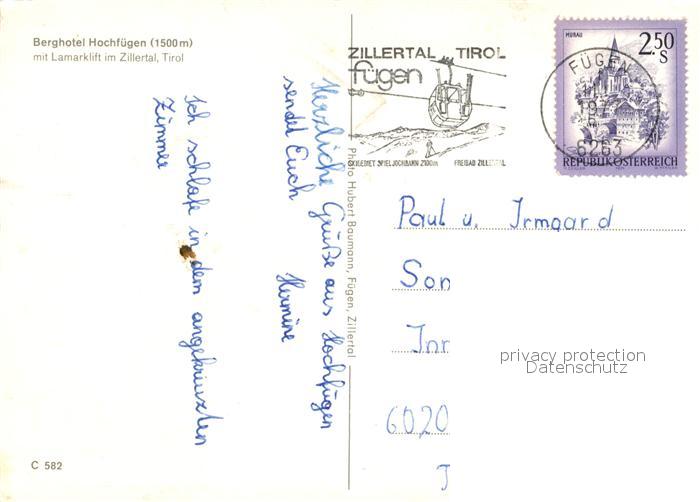 Berghotel Hochfügen (1500 m)
mit Lamarklift im Zillertal, Tirol
Herzliche Grüße aus Hochfügen
sendet Euch
Hermine
Ich schlafe in dem angekreuzten
Zimmer
C 582
Photo Hubert Baumann, Fügen, Zillertal
ZILLERTAL TIROL
fügen
SPIELJOCHBAHN 2100m FREIBAD ZILLERTAL
MURAU
2.50
S
FÜGEN
6263
REPUBLIK ÖSTERREICH
Paul u. Irmgard
Son
Inr
6020
privacy protection
Datenschutz